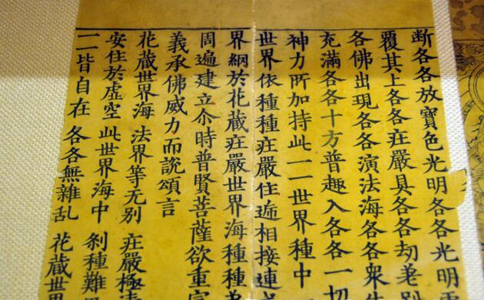 断各各放寶色光明各各光明
覆其上各各㽵嚴具各各劫差别
各佛出現各各演法海各各衆
充滿各各十方普趣入各各一切
神力所加持此一一世界種中
世界依種種㽵嚴住逓相接連
界網於花藏㽵嚴世界海種種
周遍建立尒時普賢菩薩欲重
義承佛威力而說頌言
花藏世界海 法界等无别 㽵嚴極
安住於虛空 此世界海中 刹種難
一一皆自在 各各無雜乱 花藏世界